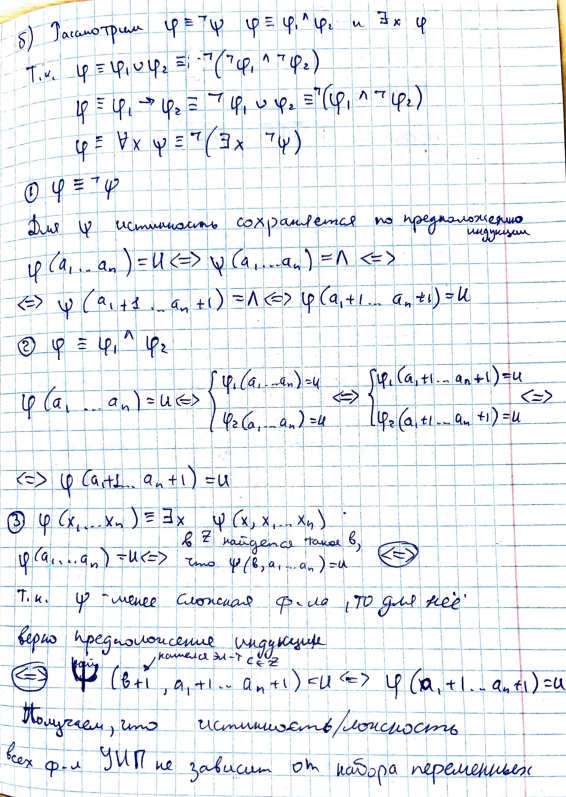 б) Рассмотрим φ ≡ ¬ψ φ ≡ φ₁ ∧ φ₂ и ∃x φ
Т.к. φ ≡ φ₁ ∪ φ₂ ≡ ¬(¬φ₁ ∧ ¬φ₂)
φ ≡ φ₁ → φ₂ ≡ ¬φ₁ ∪ φ₂ ≡ ¬(φ₁ ∧ ¬φ₂)
φ ≡ ∀x ψ ≡ ¬(∃x ¬ψ)
① φ ≡ ¬ψ
Для ψ истинность сохраняется по предположению индукции
φ(a₁...aₙ) = И <=> ψ(a₁...aₙ) = Л <=>
<=> ψ(a₁+1...aₙ+1) = Л <=> φ(a₁+1...aₙ+1) = И
② φ ≡ φ₁ ∧ φ₂
φ(a₁...aₙ) = И <=> { φ₁(a₁...aₙ) = И φ₂(a₁...aₙ) = И <=> { φ₁(a₁+1...aₙ+1) = И φ₂(a₁+1...aₙ+1) = И <=>
<=> φ(a₁+1...aₙ+1) = И
③ φ(x₁...xₙ) ≡ ∃x ψ(x, x₁...xₙ)
φ(a₁...aₙ) = И <=> в Z найдется такое b, что ψ(b, a₁...aₙ) = И <=>
Т.к. ψ - менее сложная ф-ла, то для неё
верно предположение индукции
<=> ψ(b+1, a₁+1...aₙ+1) = И <=> φ(a₁+1...aₙ+1) = И
нашелся эл-т c ∈ Z
Получаем, что истинность/ложность
всех ф-л УИП не зависит от набора переменных